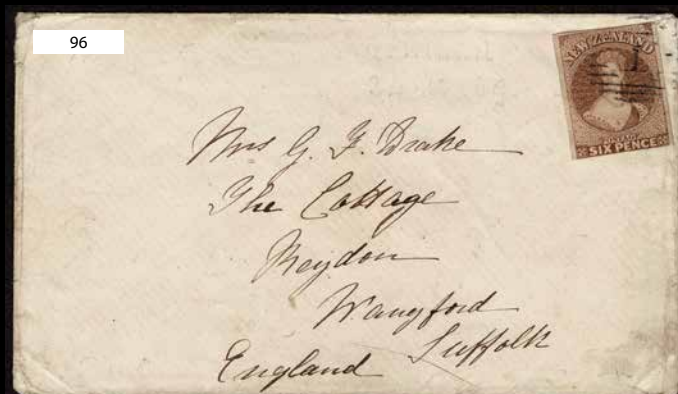 96
NEW ZEALAND
POSTAGE
SIX PENCE
1
Mrs G. F. Drake
The Cottage
Reydon
Wangford
Suffolk
England